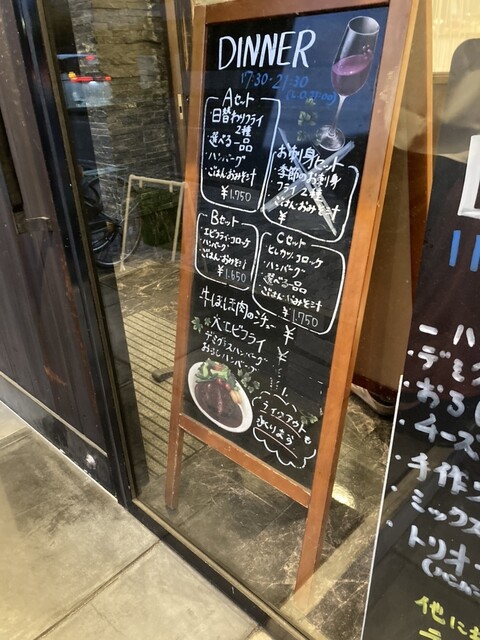 DINNER
17:30-21:30
(L.O.21:00)
Aセット
・日替わりフライ
2種
・選べる一品
・ハンバーグ
・ごはん・おみそ汁
¥1,750
お刺身セット
・季節のお刺身
フライ2種
・ごはん・おみそ汁
¥
Bセット
・エビフライ・コロッケ
・ハンバーグ
・ごはん・おみそ汁
¥1,650
Cセット
・ヒレカツ、コロッケ
・ハンバーグ
・選べる一品
・ごはん・おみそ汁
¥1,750
牛ほほ肉のシチュー
¥
大エビフライ
¥
デミグラスハンバーグ
おろしハンバーグ
テイクアウトも
あります
ハ
デミ
おろし
チーズ
・手作り
・ミックス
・トリオ
他にも